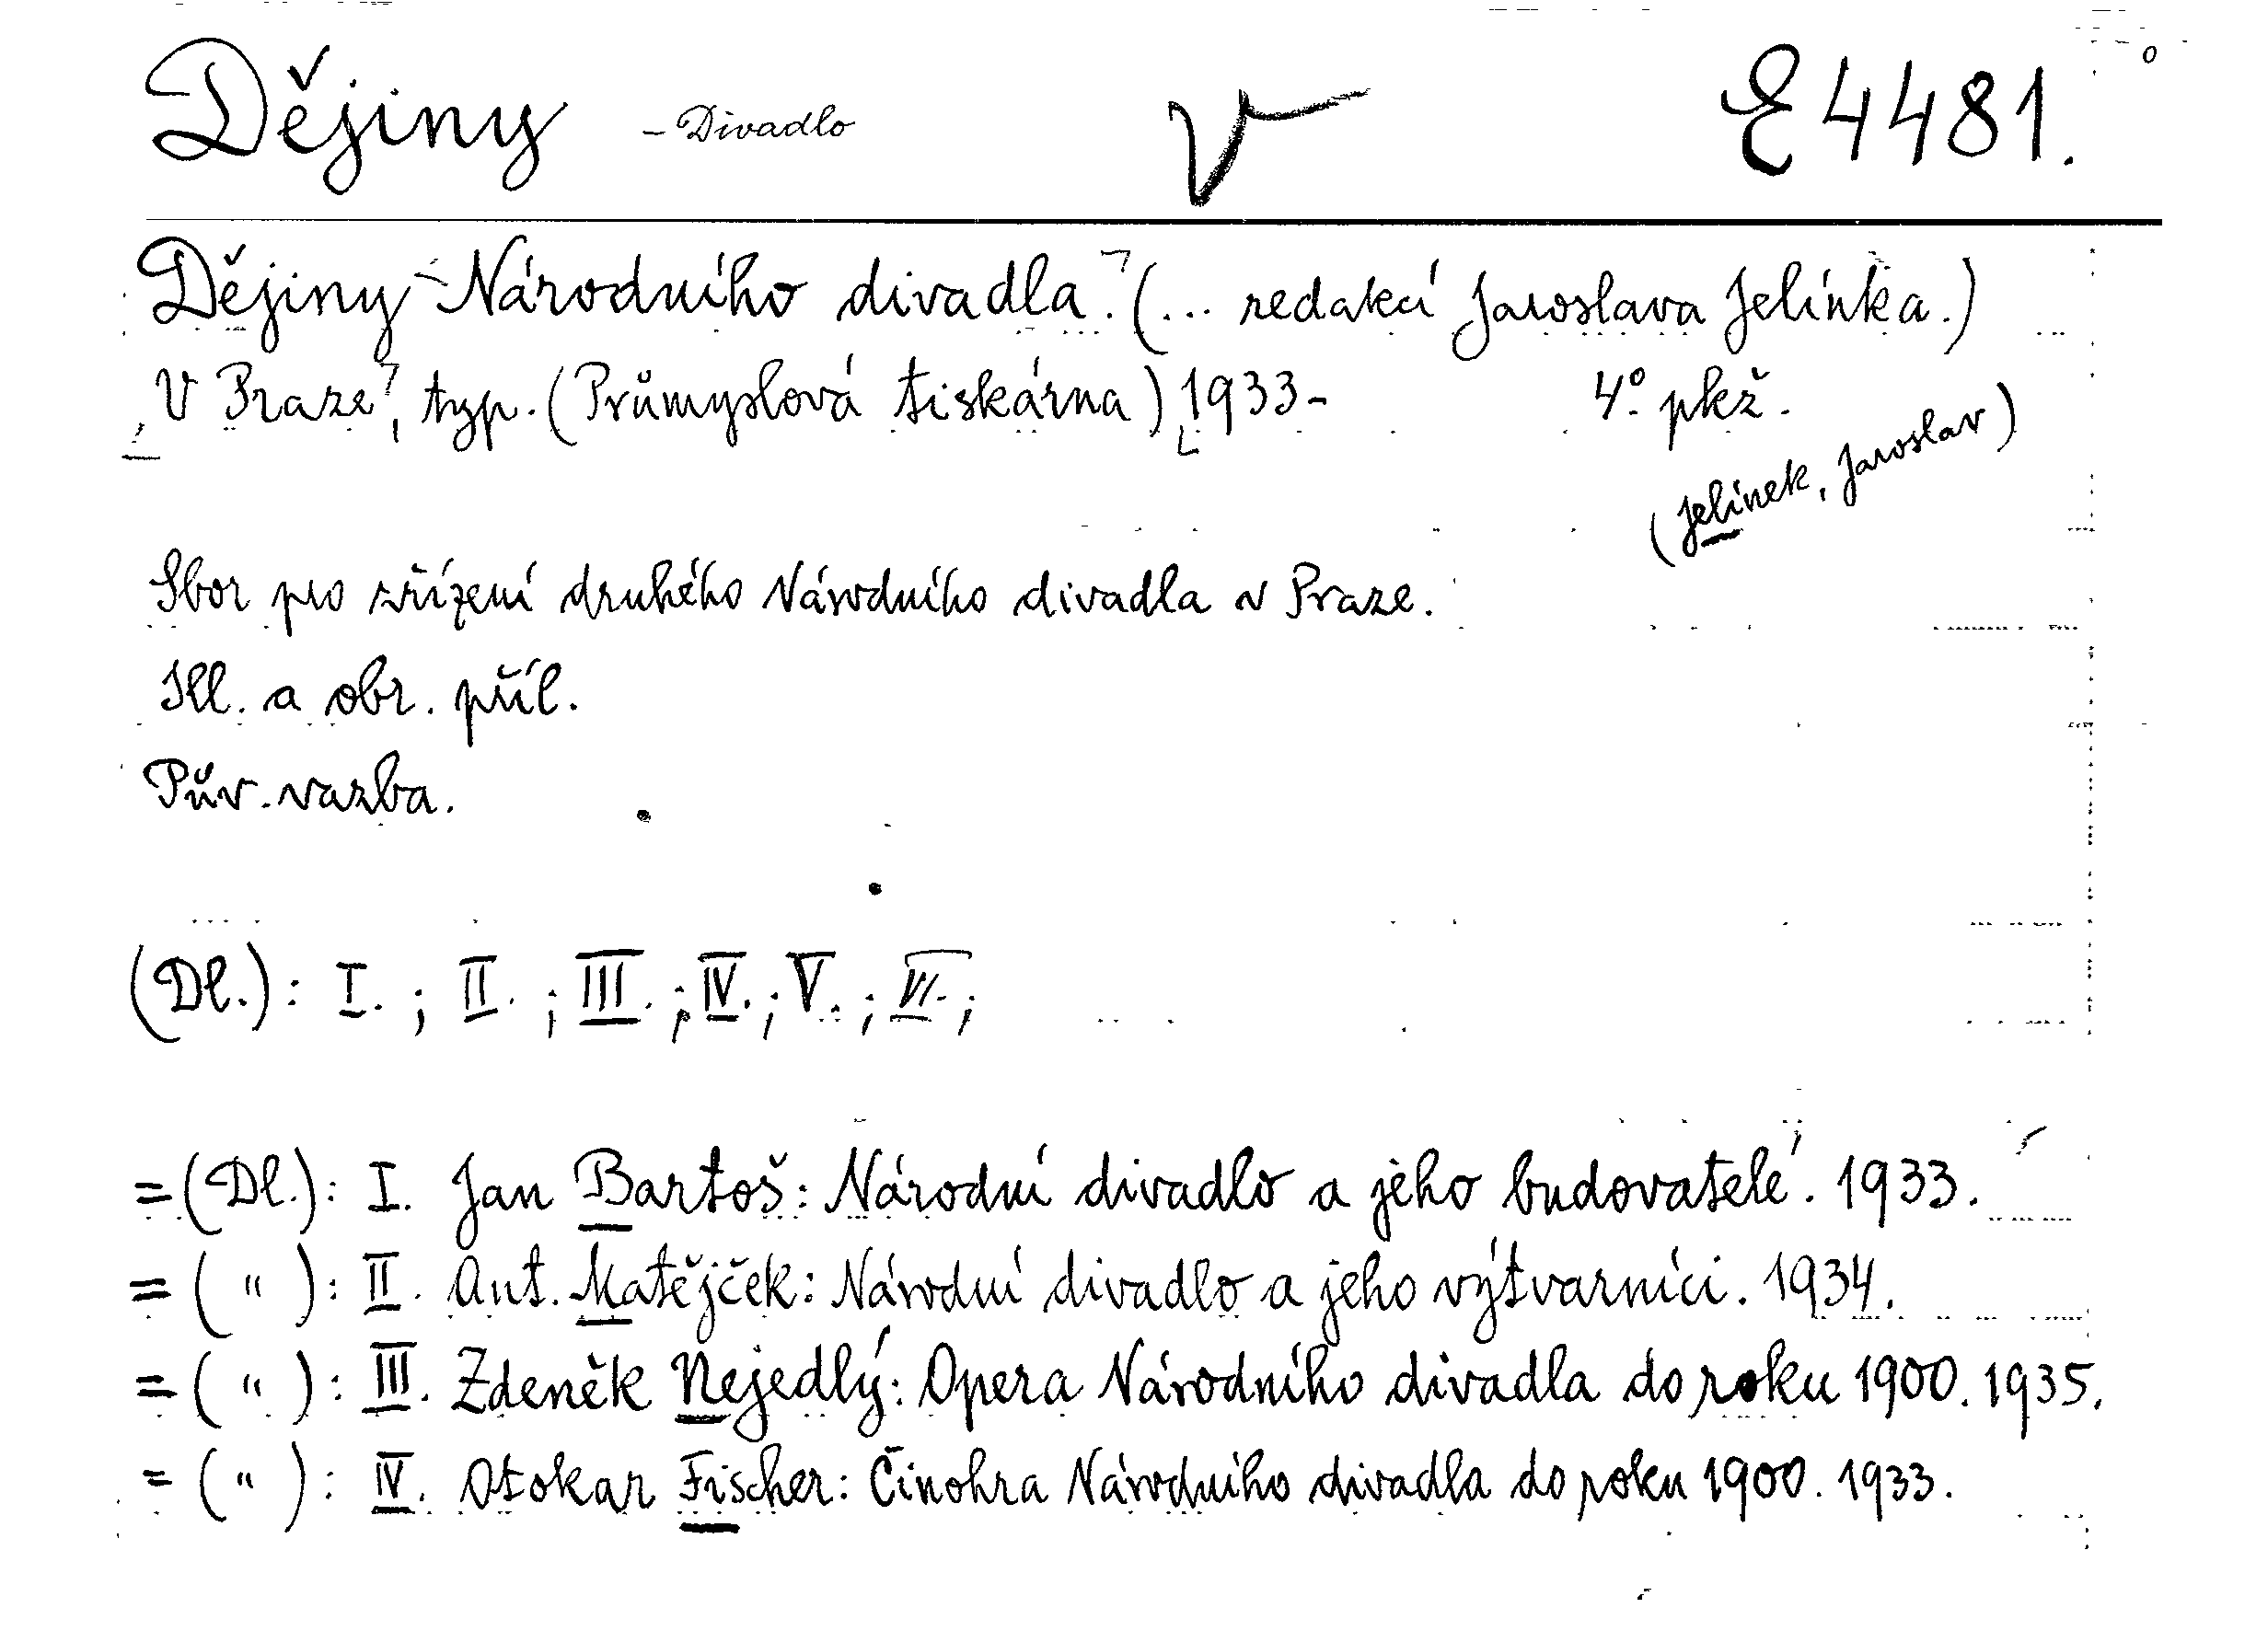 Dějiny - Divadlo V E 4481.
Dějiny Národního divadla. (... redakcí Jaroslava Jelínka.)
V Praze, typ. (Průmyslová tiskárna) 1933- 4° pkž.
(Jelínek, Jaroslav)
Sbor pro zřízení druhého Národního divadla v Praze.
Ill. a obr. příl.
Pův. vazba.
(Dl.): I. ; II. ; III. ; IV. ; V. ; VI. ;
= (Dl.): I. Jan Bartoš: Národní divadlo a jeho budovatelé. 1933.
= ( " ): II. Ant. Matějček: Národní divadlo a jeho výtvarníci. 1934.
= ( " ): III. Zdeněk Nejedlý: Opera Národního divadla do roku 1900. 1935.
= ( " ): IV. Otokar Fischer: Činohra Národního divadla do roku 1900. 1933.